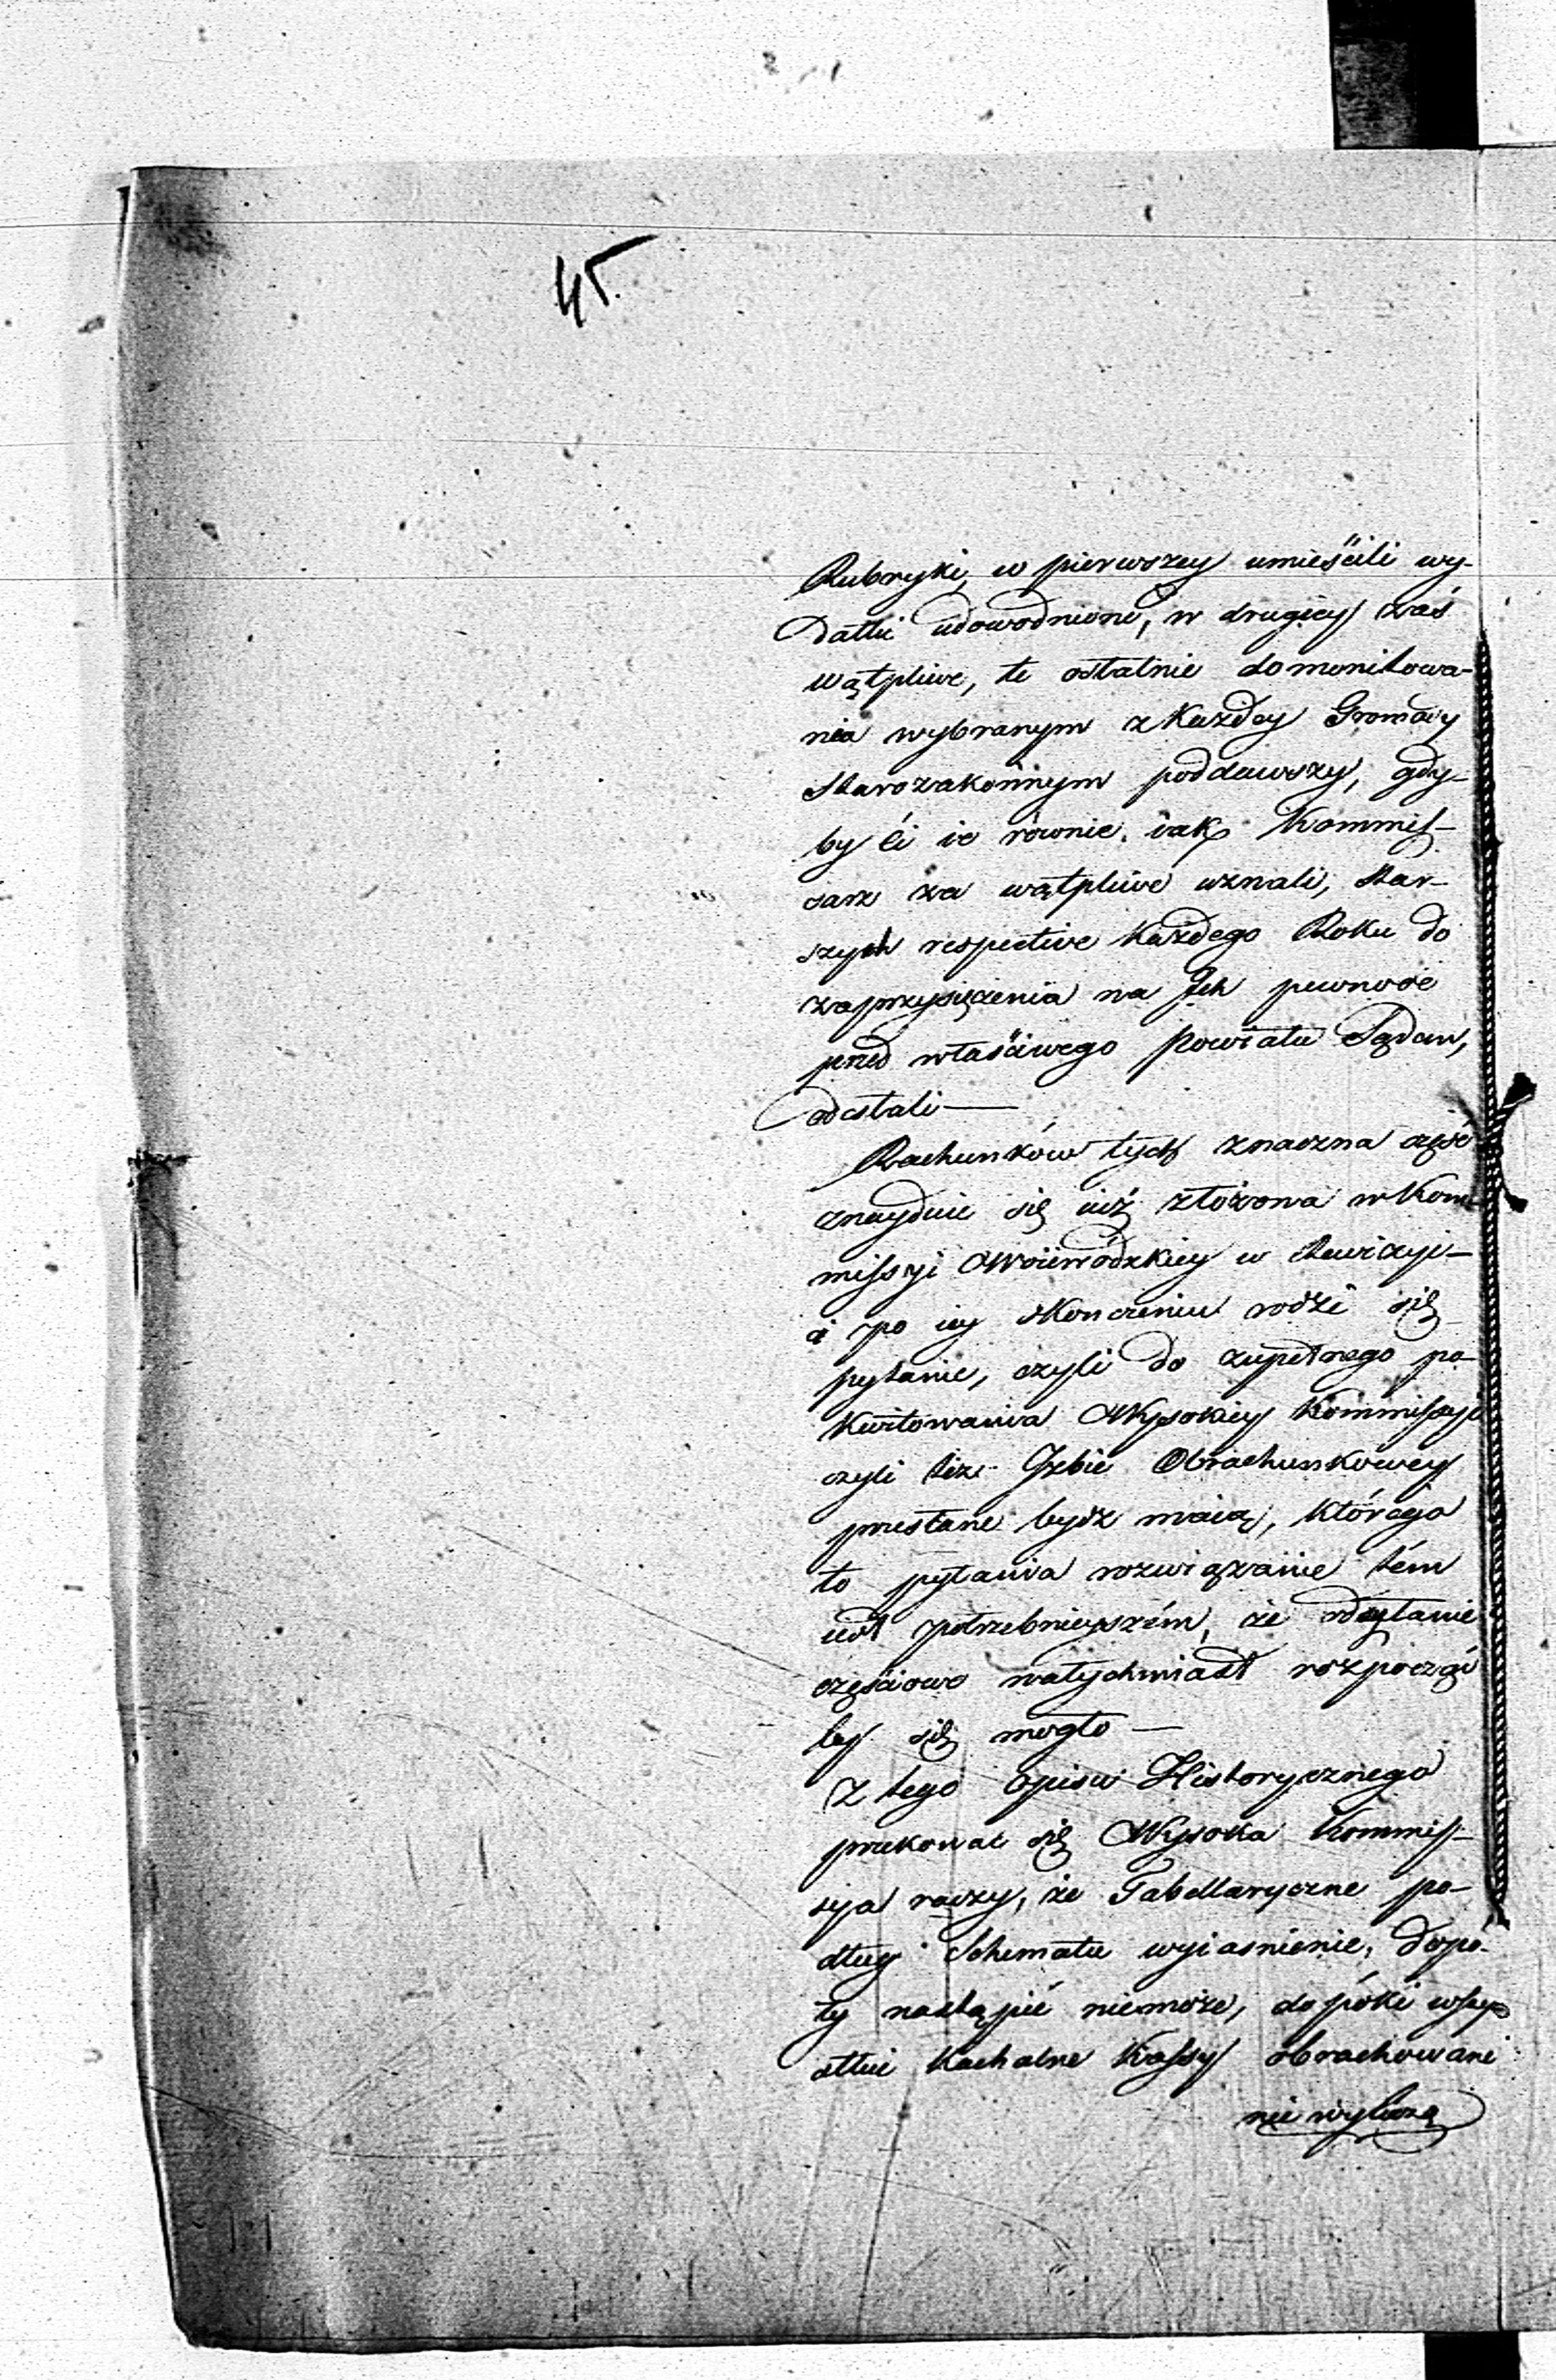 45.
Rubryki, w pierwszey umieścili wy-
datki udowodnione, w drugiey zaś
wątpliwe, te ostatnie do monitowa-
nia wybranym z Każdey Gromady
Starozakonnym poddawszy, gdy-
by ći ie równie iak Kommis-
sarz za wątpliwe uznali, Star-
szych respective Każdego Roku do
zaprzysiężenia na Ich pewność
przed właściwego Powiatu Sądem,
odesłali —
Rachunków tych znaczna część
znayduie się iuż złożona w Kom-
missyi Woiewódzkiey w Rewizyi-
a po iey skonczeniu rodzi się
pytanie, czyli do zupełnego po-
kwitowania Wysokiey Kommissyi
czyli też Izbie Obrachunkowey
przesłane bydz maią, którego
to pytania rozwiązanie tém
iest potrzebnieyszém, że odesłanie
częściowo natychmiast rozpocząć
by się mogło —
Z tego opisu Historycznego
przekonać się Wysoka Kommis-
syia raczy, że Tabellaryczne po-
dług Schematu wyiasnienie, dopó-
ty nastąpić niemoże, dopóki wszy-
stkie Kachalne Kassy obrachowane
nie wyliczą